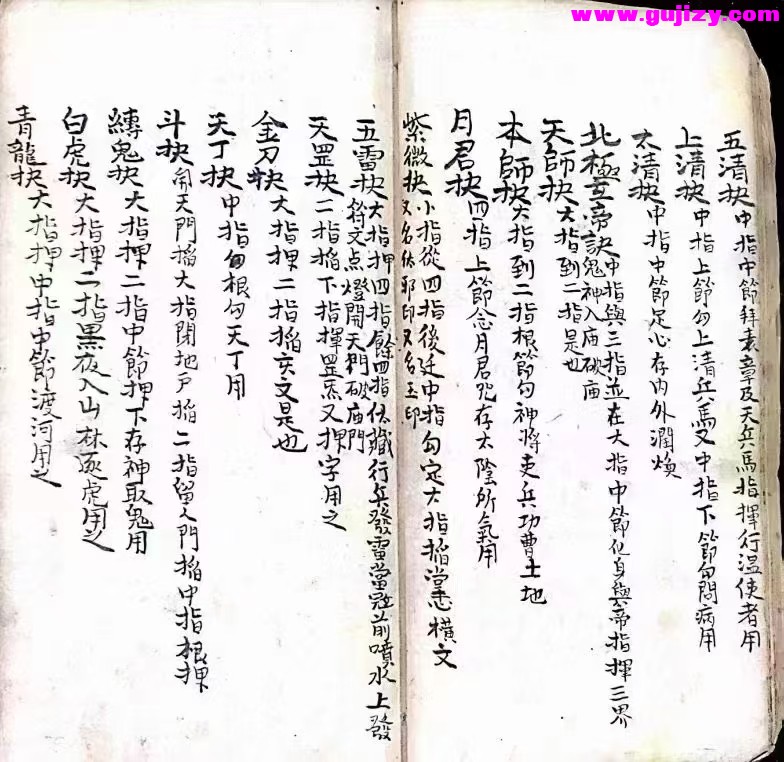 www.gujizy.com
五清抉中指中節拜表章及天兵馬指揮行溫使者用
上清抉中指上節勾上清兵馬又中指下節勾問病用
太清抉中指中節是心存內外潤煥
北極玄帝訣中指與三指並在大指中節化身與帝指揮三界
鬼神入庙破庙
天師抉大指到二指是也
本師抉大指到二指根節勾神將吏兵功曹土地
月君抉四指上節念月君咒存太陰所氣用
紫微抉小指從四指後过中指勾定大指掐掌心橫文
又名伏邪印又名玉印
五雷抉大指押四指餘四指伏藏行兵發雷當冠前噴水上發
符文点燈開天門破庙門
天罡抉二指掐下指揮罡炁又押字用之
金刀抉大指押二指掐亥文是也
天丁抉中指勾根勾天丁用
斗抉開天門掐大指閉地户掐二指留人門掐中指根押
縛鬼抉大指押二指中節押下存神取鬼用
白虎抉大指押二指黑夜入山林逐虎用之
青龍抉大指押中指中節渡河用之